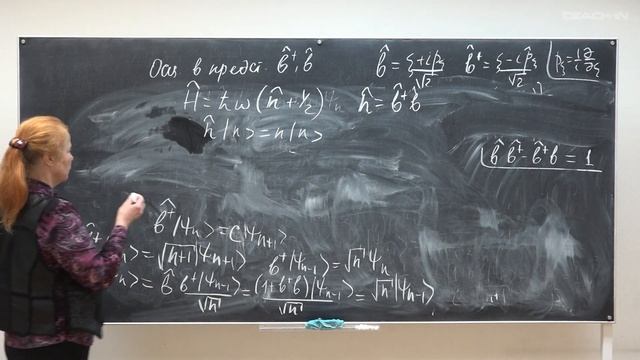 Осц в предст. b̂⁺, b̂
b̂ = (ξ + i p̂_ξ)/√2    b̂⁺ = (ξ − i p̂_ξ)/√2    p̂_ξ = (1/i) ∂/∂ξ
Ĥ = ħω(n̂ + 1/2) ψn    n̂ = b̂⁺b̂
n̂|n> = n|n>
b̂ b̂⁺ − b̂⁺b = 1
b̂⁺|ψn> = C|ψn+1>
n> = √(n+1) |ψn+1>    b⁺|ψn−1> = √n ψn
n> = b̂ b⁺|ψn−1>/√n = (1 + b⁺b)|ψn−1>/√n = √n |ψn−1>